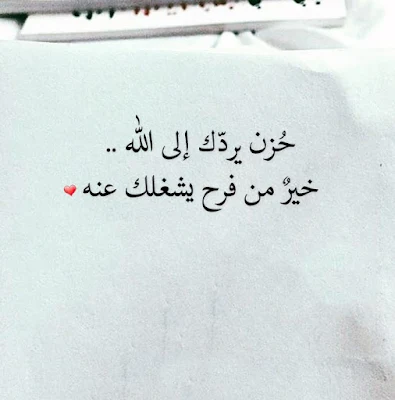 حُزن يردّك إلى الله ..
خيرٌ من فرح يشغلك عنه ❤